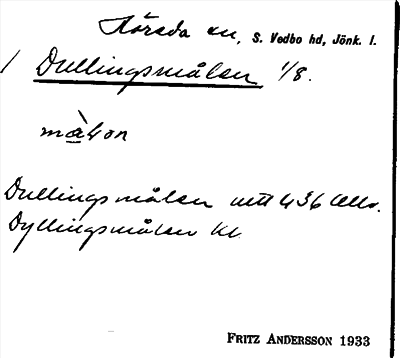 Hörsda sn, S. Vedbo hd, Jönk. l.
/ Dullingsmålen 1/8.
målon
Dullingsmålen mtl 436
Dyllingsmålen kl.
FRITZ ANDERSSON 1933